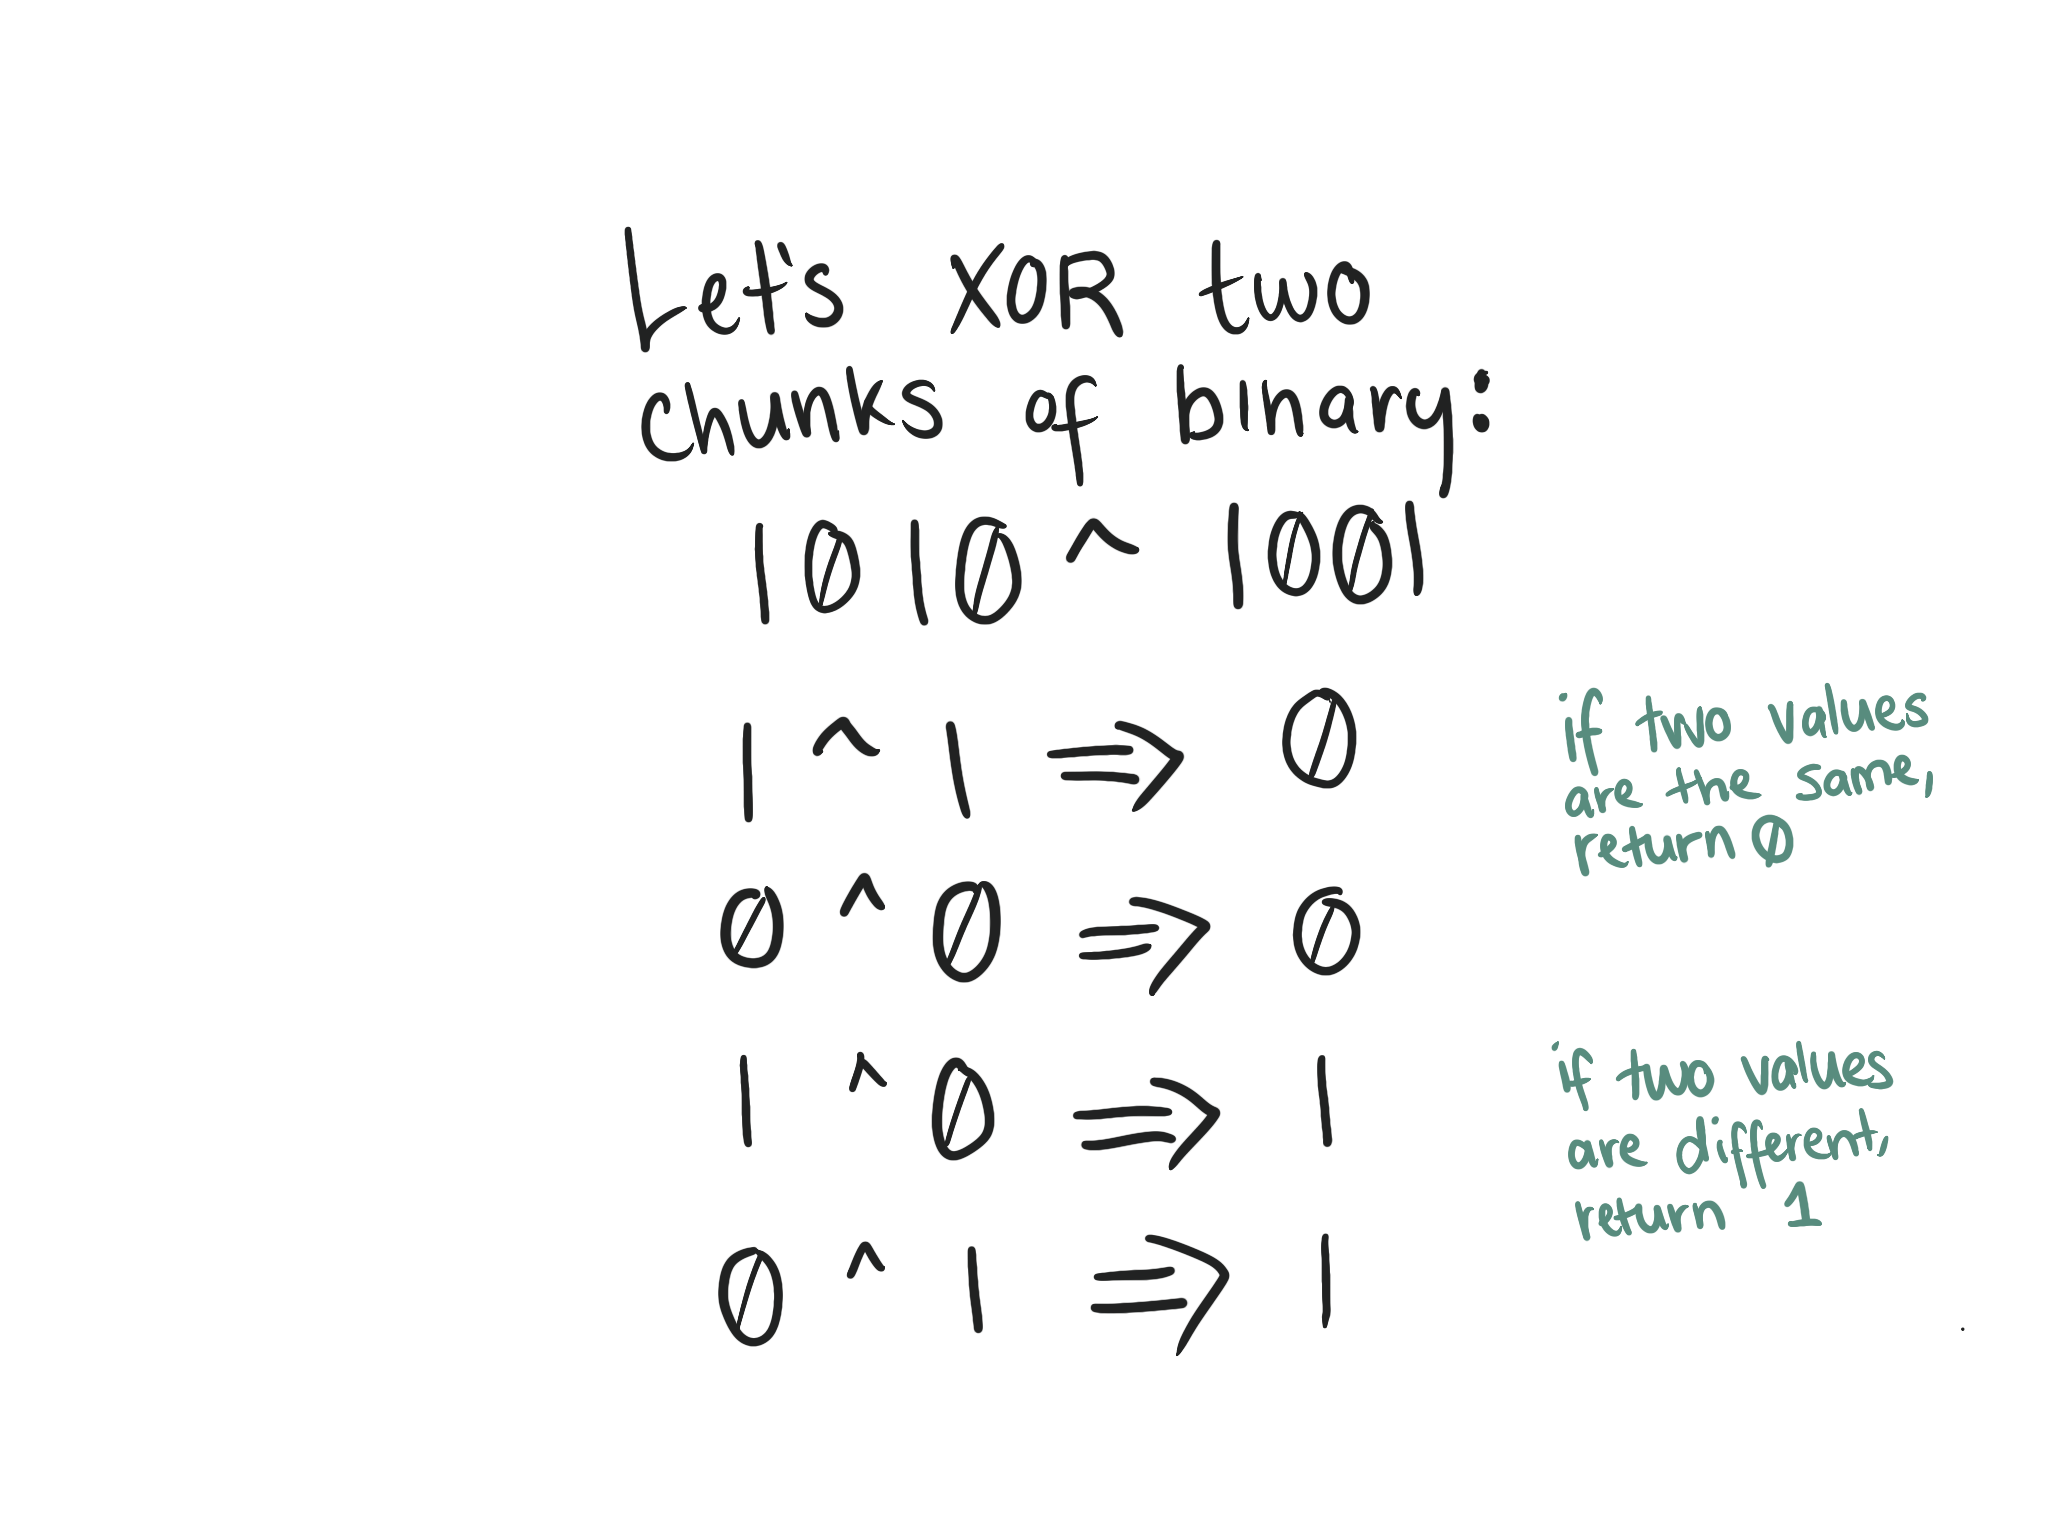 Let's XOR two
chunks of binary:
1010 ^ 1001
1 ^ 1 ⇒ 0
if two values
are the same,
return 0
0 ^ 0 ⇒ 0
1 ^ 0 ⇒ 1
if two values
are different,
return 1
0 ^ 1 ⇒ 1